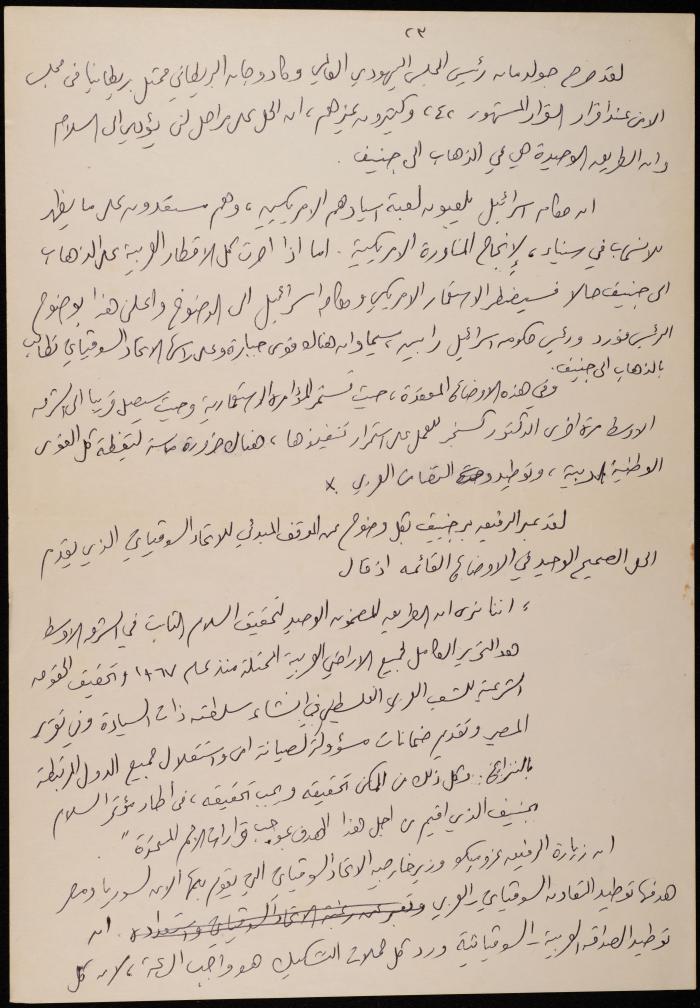 ٢٣
لقد صرح جولدمان رئيس المجلس اليهودي العالمي وكارادون البريطاني ممثل بريطانيا في مجلس
الامن عند اقرار القرار المشهور ٢٤٢ وكثيرون غيرهم، ان الحل على مراحل لن يؤدي الى السلام
وان الطريق الوحيدة هي في الذهاب الى جنيف.
ان حكام اسرائيل يلعبون لعبة اسيادهم الامريكيين، وهم مستعدون على ما يظهر
للانسحاب في سيناء، لإنجاح المناورة الامريكية. اما اذا اصرت كل الاقطار العربية على الذهاب
الى جنيف حالا فسيضطر الاستعمار الامريكي وحكام اسرائيل الى الرضوخ واعلن هذا بوضوح
الرئيس فورد ورئيس حكومة اسرائيل رابين، سيما وان هناك قوى جبارة وعلى رأسها الاتحاد السوفياتي تطالب
بالذهاب الى جنيف.
وفي هذه الاوضاع المعقدة، حيث تستمر المؤامرة الاستعمارية وحيث سيصل قريبا الى الشرق
الاوسط مرة اخرى الدكتور كسنجر للعمل على استمرار تنفيذها، هناك ضرورة ماسة ليقظة كل القوى
الوطنية العربية، وتوطيد التضامن العربي x
لقد عبر الرفيق بريجنيف بكل وضوح عن الموقف المبدئي للاتحاد السوفياتي الذي يقدم
الحل الصحيح الوحيد في الاوضاع القائمة اذ قال
" اننا نرى ان الطريق المضمون الوحيد لتحقيق السلام الثابت في الشرق الاوسط
هو التحرير الكامل لجميع الاراضي العربية المحتلة منذ عام ١٩٦٧ وتحقيق الحقوق
الشرعية للشعب العربي الفلسطيني في انشاء سلطته ذات السيادة وفي تقرير
المصير وتقديم ضمانات مسؤولة لصيانة امن واستقلال جميع الدول المرتبطة
بالنزاع. وكل ذلك من الممكن تحقيقه ويجب تحقيقه، في اطار مؤتمر السلام
بجنيف الذي اقيم من اجل هذا الهدف بموجب قرارات الامم المتحدة".
ان زيارة الرفيق غروميكو وزير خارجية الاتحاد السوفياتي التي يقوم بها الان لسوريا ومصر
هدفها توطيد التعاون السوفياتي - العربي وتعبر عن رغبة الاتحاد السوفياتي واستعداده. ان
توطيد الصداقة العربية - السوفياتية ورد كل حملات التشكيك هو واجب الساعة، لان كل